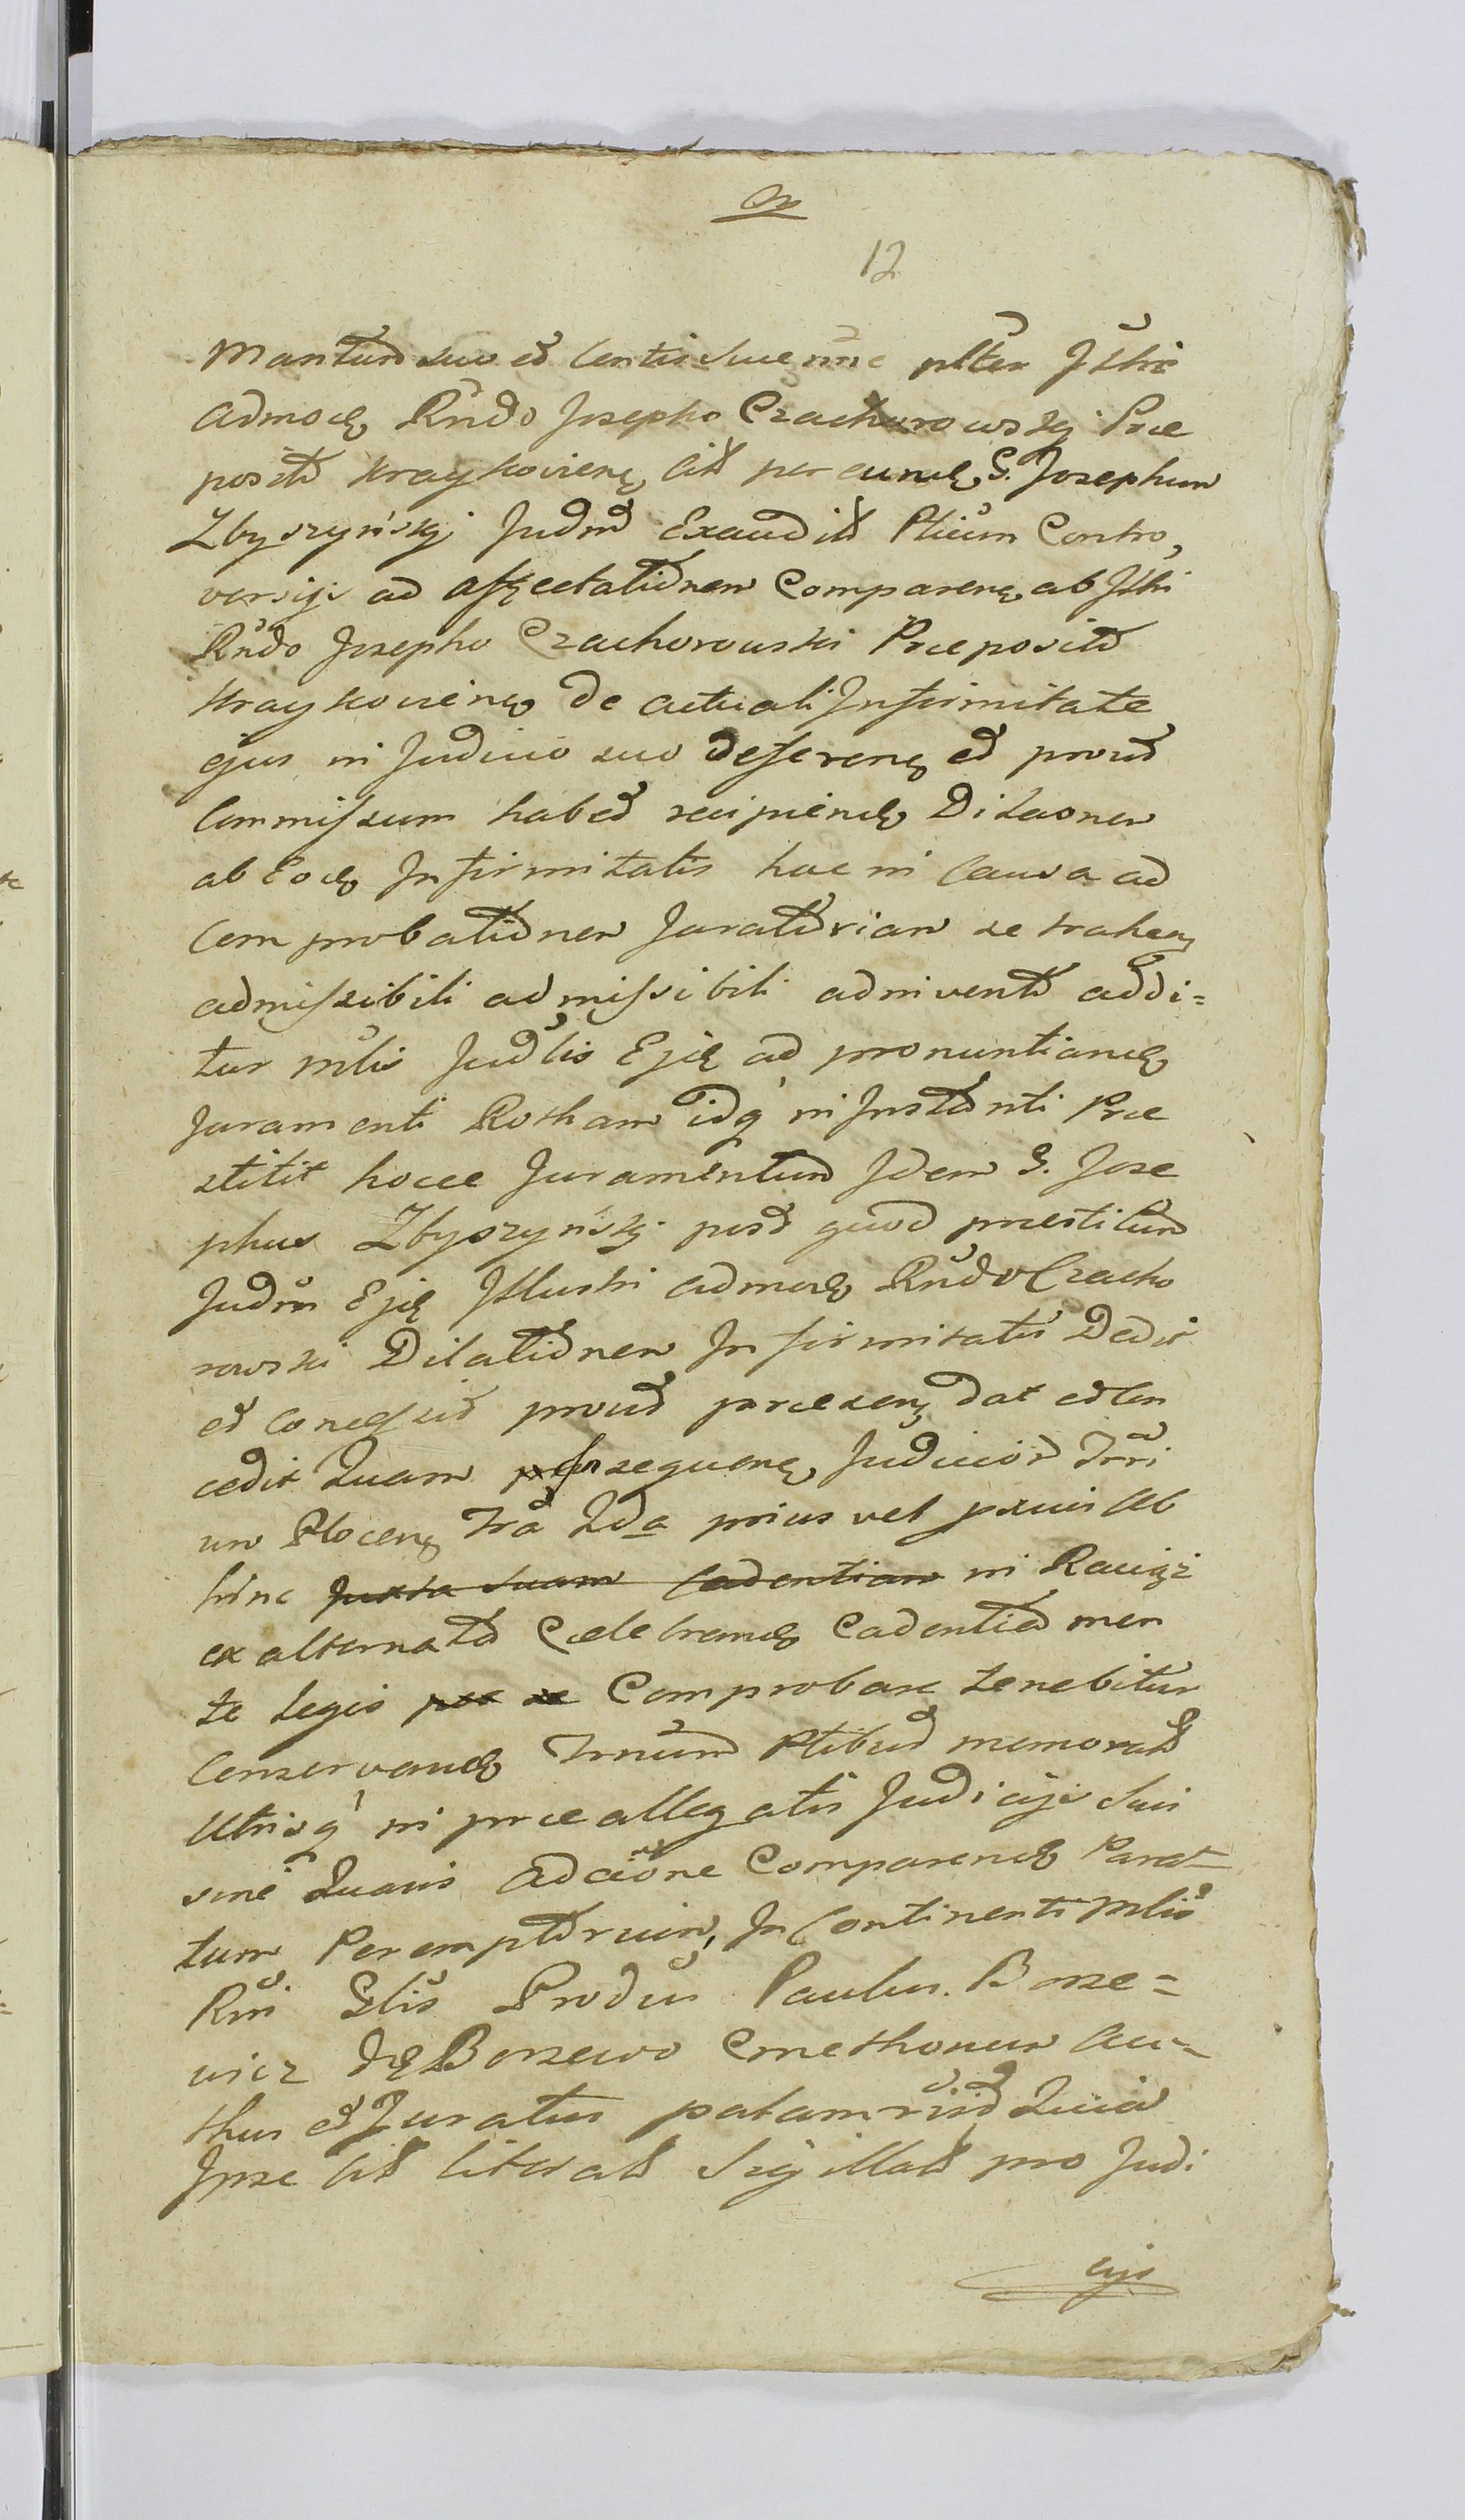 12
Mantum suo et
admodę Rndo Josepho Czachurowsky Præ
posito kraykovienę per eundę G. Josephum
Zbyszyńsky Judm Exaudits Ptium Contro,
versijs ad affectationem Comparenę ab Jlhi
Rndo Josepho Czachorowski Præposito
kraykovienę de actuali Infirmitate
ejus in Judicio suo deferenę et prout
Commissum habet recipiendę Dilaonem
ab Eodę Infirmitatis hac in Causa ad
Comprobationem Juratoriam se trahenę
admissibili admissibili adinvento addi=
tur mlis Judlis Ejdę ad pronuntiandę
Juramenti Rotham idq in Instanti Præ
stitit hocce Juramentum Idem G. Jose
phus Zbyszyńsky post quod præstitum
Judm Ejdę Jllustri admodę Rndo Czacho
rowski Dilationem Infirmitatis Dedit
et Concessit prout præsenę dat et Con
cedit Quam in sequenę Judicior Trri
um Plocenę Tra 2da prius vel ab
hinc juxta suam Cadentiam in Raciąż
ex alternata Celebrandę Cadentia men
te legis per se Comprobare tenebitur
Conservandę Trnum Ptibus memorats
Utrisq in præallegatis Judicijs Sui
sine Quavis Adcitione Comparendę Parat
tum Peremptorium, In Continenti Mlis
Rni Glis Produs Paulus Borze=
wicz de Borzewo Cmethonum au=
thus et Juratus palam Quia
Ipse lits literats Sigillats pro Judi
cijs